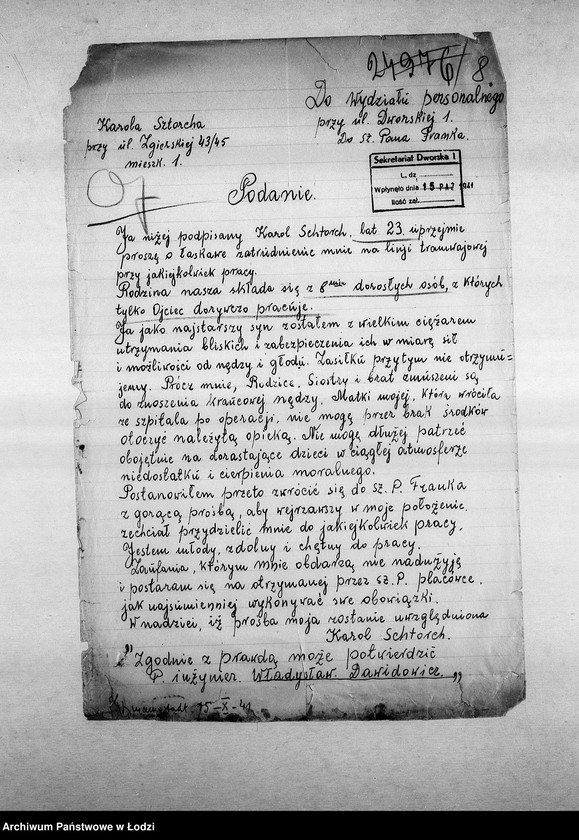 24976/8
Do Wydziału personalnego
przy ul. Dworskiej 1.
Do Sz. Pana Franka.
Karola Sztorcha
przy ul. Zgierskiej 43/45
mieszk. 1.
Sekretariat Dworska 1
L. dz.
Wpłynęło dnia 15 PAZ 1941
Ilość zał.
Podanie.
Ja niżej podpisany Karol Schtorch, lat 23, uprzejmie
proszę o łaskawe zatrudnienie mnie na linji tramwajowej
przy jakiejkolwiek pracy.
Rodzina nasza składa się z dorosłych osób, z których
tylko Ojciec dorywczo pracuje.
Ja jako najstarszy syn zostałem z wielkim ciężarem
utrzymania bliskich i zabezpieczenia ich w miarę sił
i możliwości od nędzy i głodu. Zasiłku przytym nie otrzymu-
jemy. Prócz mnie, Rodzice, Siostry i brat zmuszeni są
do znoszenia krańcowej nędzy. Matki mojej, która wróciła
ze szpitala po operacji, nie mogę przez brak środków
otoczyć należytą opieką. Nie mogę dłużej patrzeć
obojętnie na dorastające dzieci w ciągłej atmosferze
niedostatku i cierpienia moralnego.
Postanowiłem przeto zwrócić się do Sz. P. Franka
z gorącą prośbą, aby wejrzawszy w moje położenie,
zechciał przydzielić mnie do jakiejkolwiek pracy.
Jestem młody, zdolny i chętny do pracy.
Zaufania, którym mnie obdarzą nie nadużyję
i postaram się na otrzymanej przez sz. P. placówce,
jak najsumienniej wykonywać swe obowiązki.
W nadzieii, iż prośba moja zostanie uwzględniona
Karol Schtorch.
„Zgodnie z prawdą może potwierdzić
P. inżynier. Władysław Dawidowicz."
15-X-41
Archiwum Państwowe w Łodzi